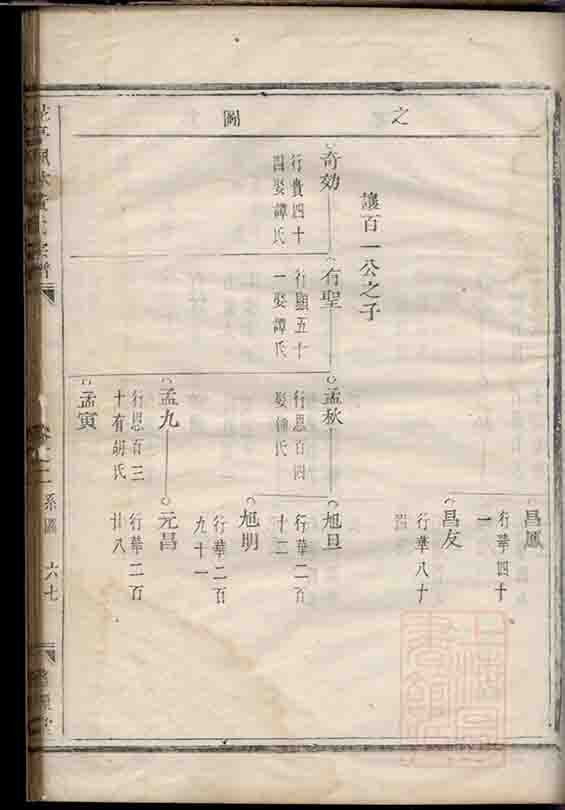 之
圖
昌鳳
行華四十
一
昌友
行華八十
讓百一公之子
奇効
行貴四十
四娶譚氏
有聖
行顯五十
一娶譚氏
孟秋
行恩百四
旭旦
行華二百
十二
旭明
行華二百
九十一
孟九
行恩百三
十有胡氏
元昌
行華二百
廿八
孟寅
系圖
六七